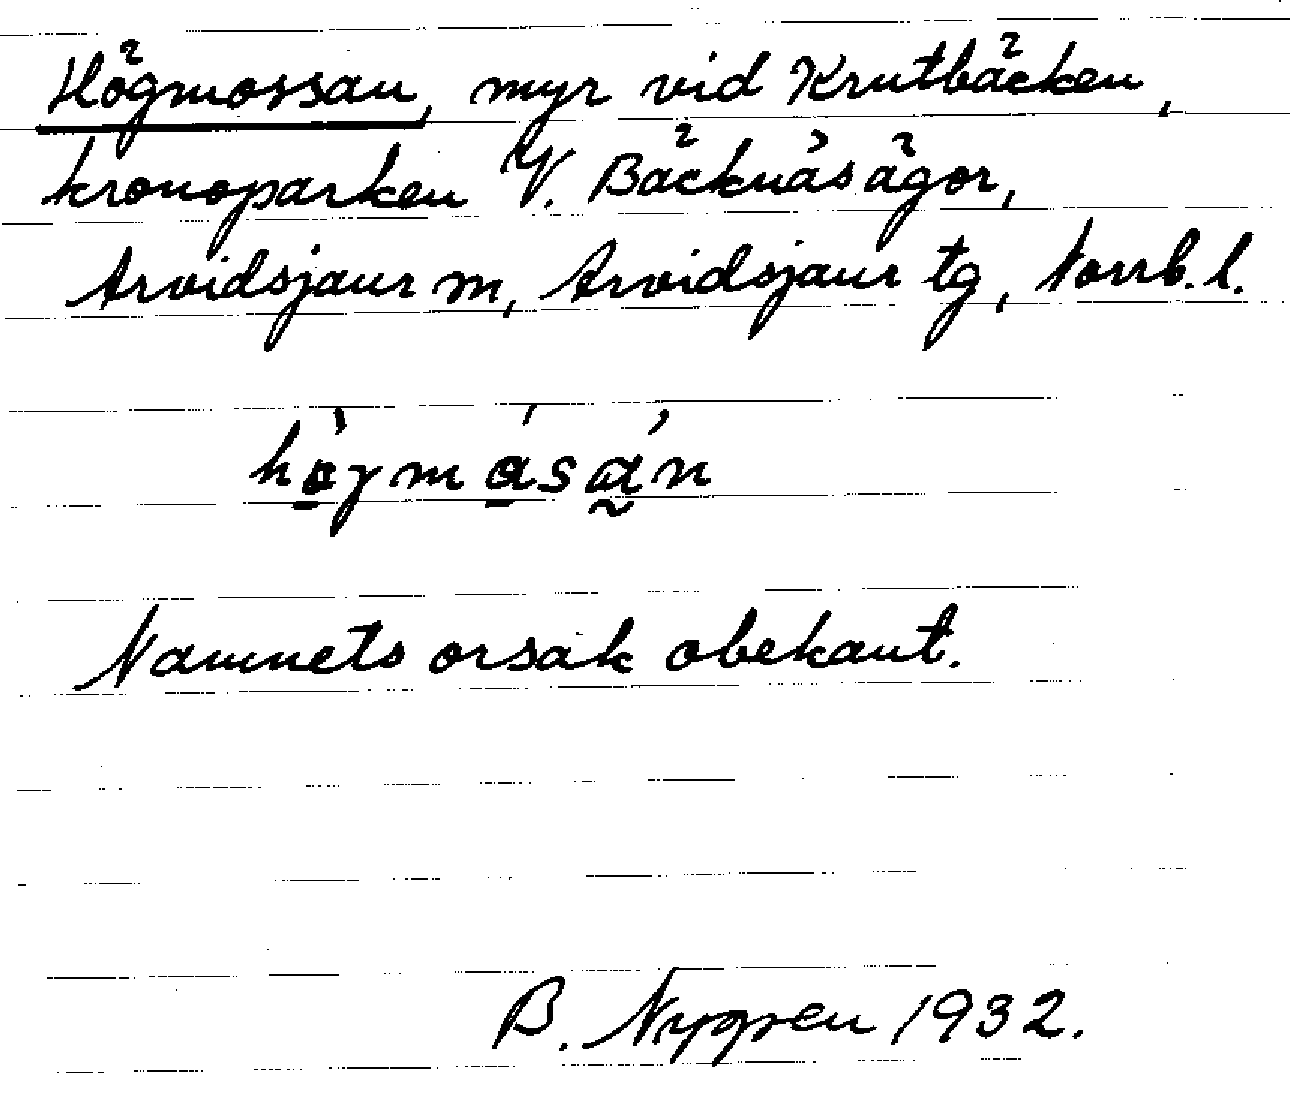 Högmossan, myr vid Krutbäcken,
kronoparken V. Bäcknäs ägor,
Arvidsjaur sn, Arvidsjaur tg, Norrb. l.
Namnets orsak obekant.
B. Nygren 1932.